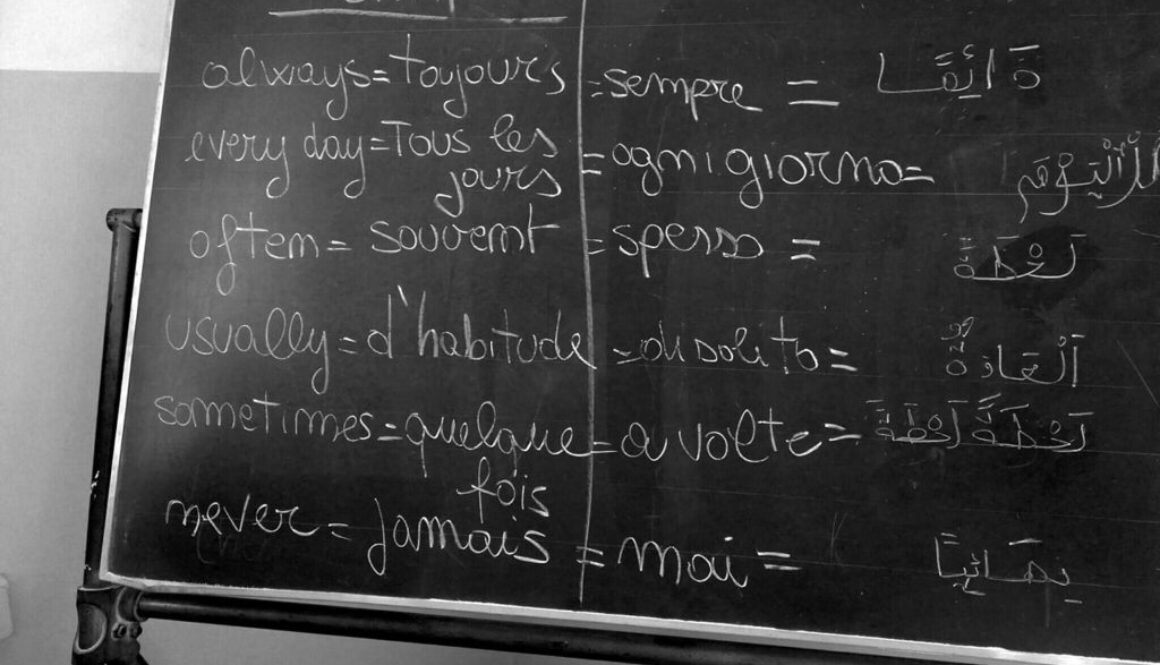 always = toujours = sempre =
every day = Tous les jours = ogni giorno =
often = souvent = spesso = لَحْظَةً
usually = d'habitude = di solito = اَلْعَادَةُ
sometimes = quelque fois = a volte = لَحْظَةً لَحْظَةً
never = jamais = mai =